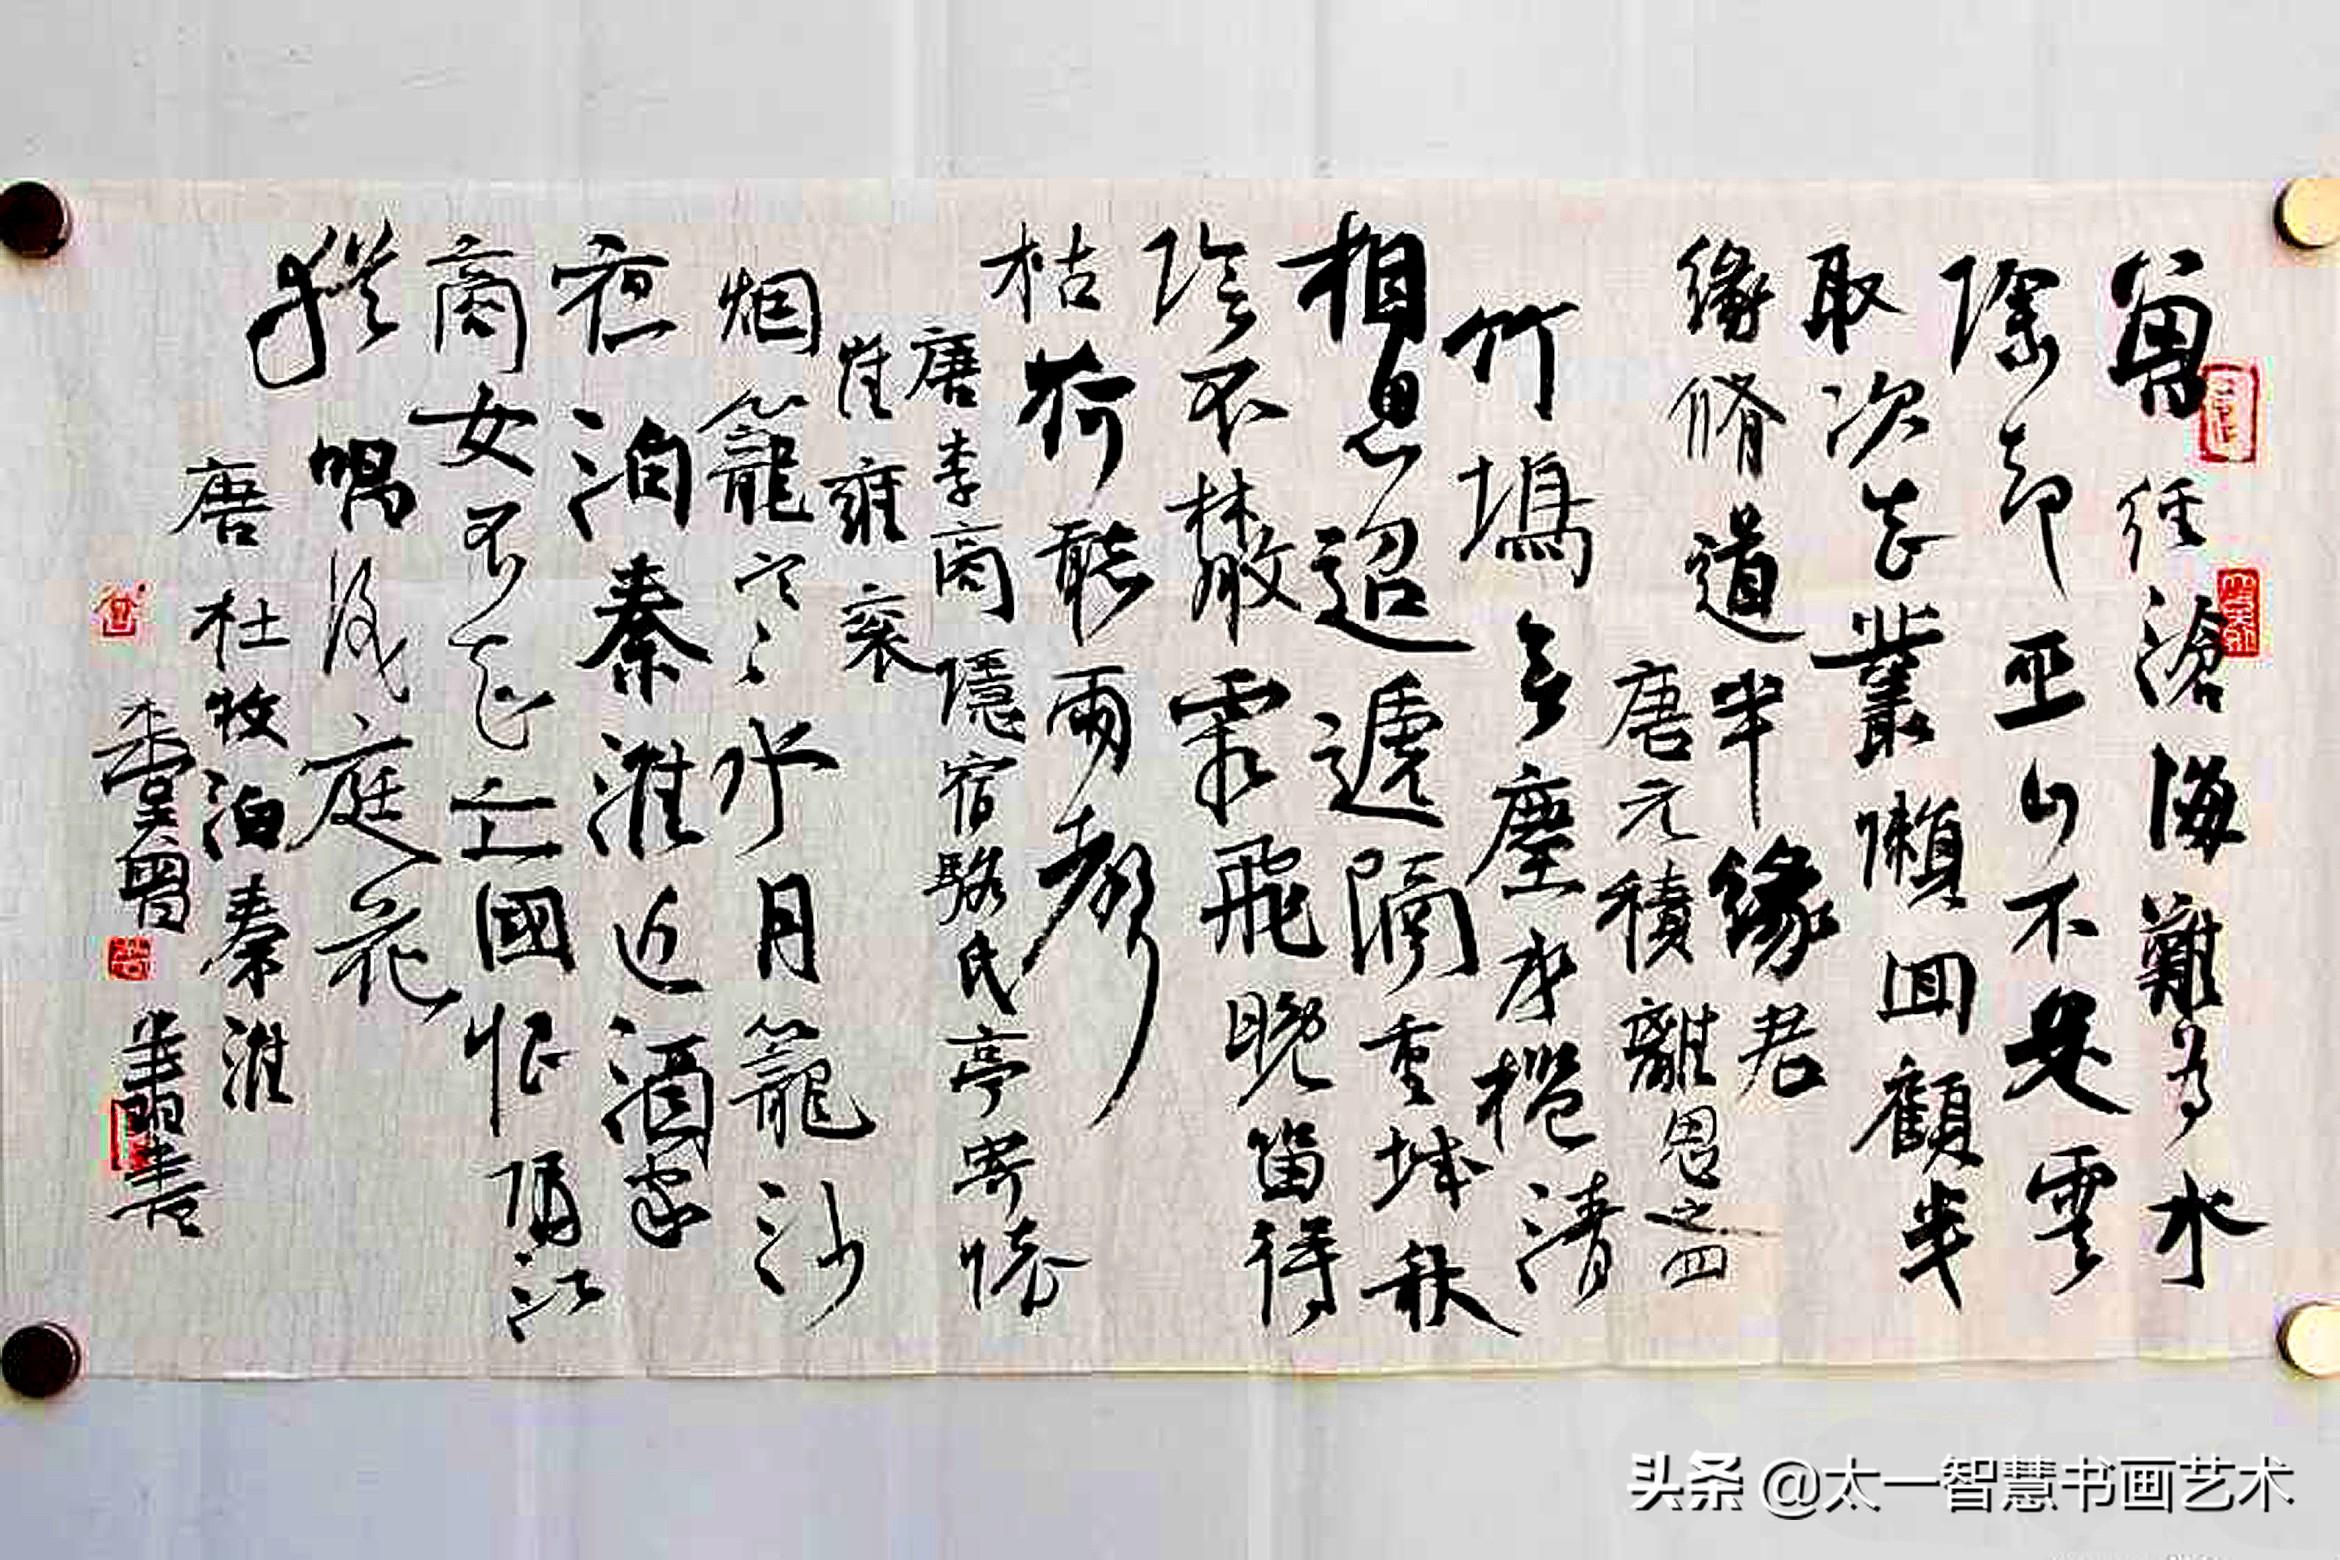 曾経滄海難為水
除却巫山不是雲
取次花叢懶回顧半
緣脩道半緣君
唐元積離思之四
竹塢無塵水檻清
相思迢遞隔重城秋
陰不散霜飛晚留得
枯荷聽雨聲
唐李商隱宿駱氏亭寄懷
崔雍衮
烟籠寒水月籠沙
夜泊秦淮近酒家
商女不知亡國恨隔江
猶唱後庭花
唐杜牧泊秦淮
书
头条 @太一智慧书画艺术